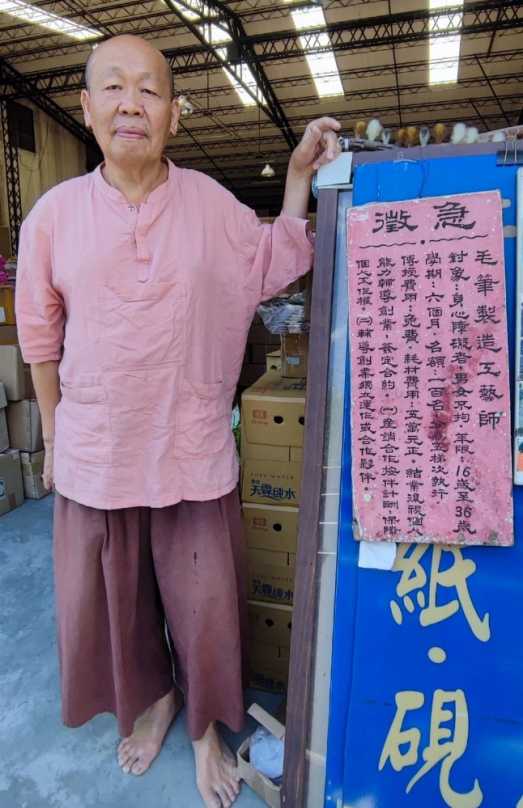 急徵
毛筆製造工藝師
對象：身心障礙者，男女不拘，年限：16歲至36歲
學期：六個月。名額：一百名，分為五梯次執行。
傳授費用：免費。耗材費用：五萬元正。結業後視個人
能力輔導創業，簽定合約。㈠產銷合作按件計酬，保障
個人工作權。㈡輔導創業獨立運作或合作夥伴。
紙·硯
PURE WATER
純水